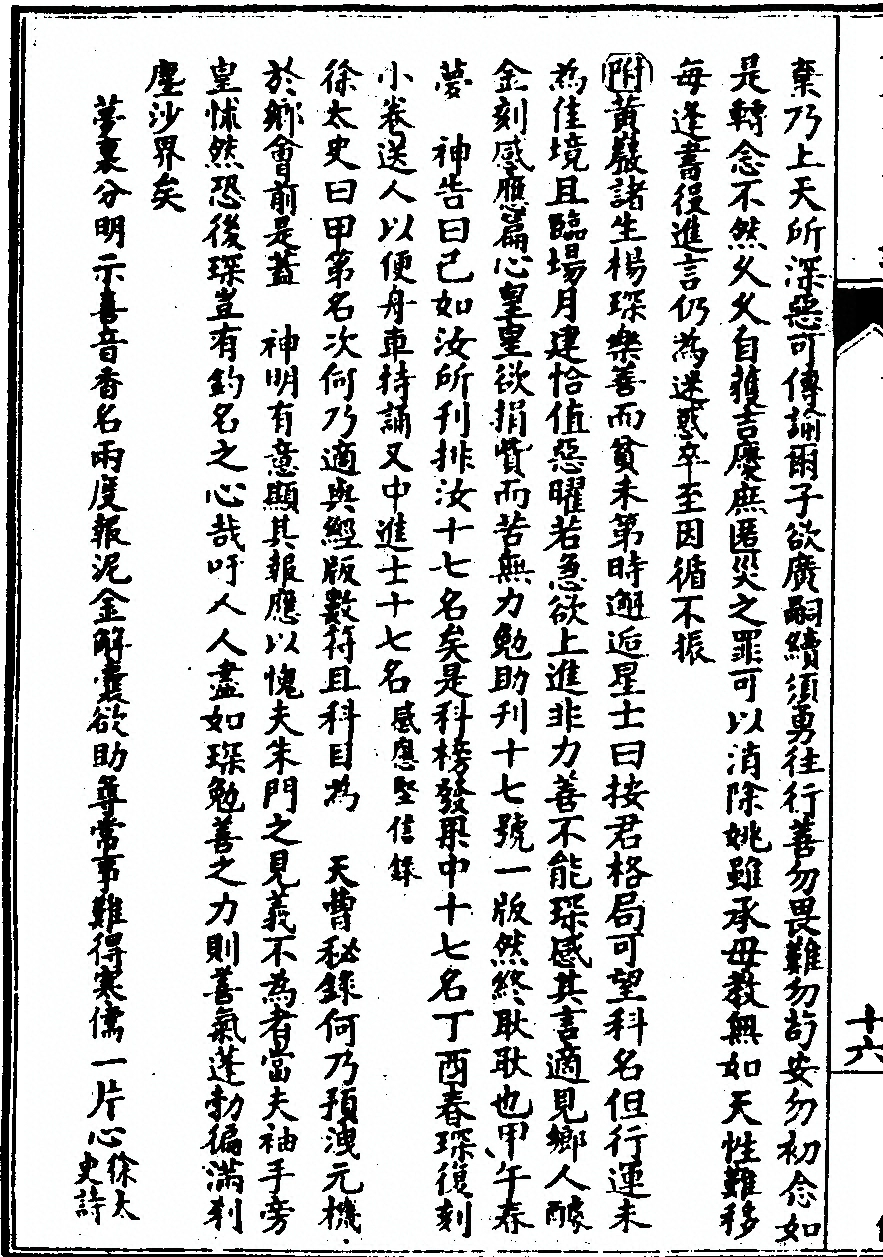 棄乃上天所深惡可傳諭爾子欲廣嗣續須勇往行善勿畏難勿苟安勿初念如
是轉念不然久久自獲吉慶庶匿災之罪可以消除姚雖承母教無如天性難移
每逢書役進言仍為迷惑卒至因循不振
附黃巖諸生楊琛樂善而貧未第時邂逅星士曰按君格局可望科名但行運未
為佳境且臨場月建恰值惡曜若急欲上進非力善不能琛感其言適見鄉人醵
金刻感應篇心皇皇欲捐貲而苦無力勉助刊十七號一版然終耿耿也甲午春
夢　神告曰已如汝所刊排汝十七名矣是科榜發果中十七名丁酉春琛復刻
小卷送人以便舟車持誦又中進士十七名感應堅信錄
徐太史曰甲第名次何乃適與經版數符且科目為　天曹秘錄何乃預洩元機
於鄉會前是蓋　神明有意顯其報應以愧夫朱門之見義不為者當夫袖手旁
皇怵然恐後琛豈有釣名之心哉吁人人盡如琛勉善之力則善氣蓬勃徧滿剎
塵沙界矣
夢裏分明示善音香名兩度報泥金解囊欲助尋常事難得寒儒一片心徐太史詩
十六